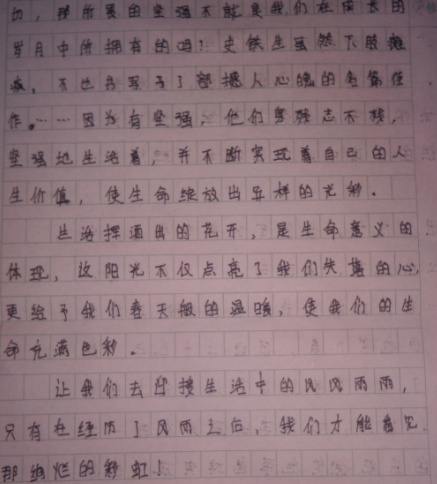 切，理所要的坚强不就是我们在成长的
岁月中所拥有的吗！史铁生虽然下肢瘫
痪，不也写予了部撼人心魄的名篇佳
作。……因为有坚强，他们身残志不残，
坚强地生活着，并不断实现着自己的人
生价值，使生命绽放出异样的光彩。
生活挥洒出的花开，是生命意义的
体现，故阳光不仅点亮了我们失落的心，
更给予我们春天般的温暖，使我们的生
命充满色彩。
让我们去迎接生活中的风风雨雨，
只有在经历了风雨之后，我们才能看见
那绚烂的彩虹！